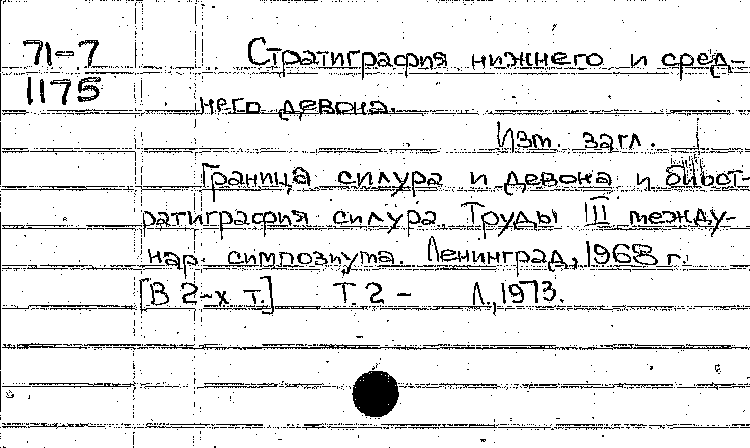 71-7 Стратиграфия нижнего и сред-
1175
него девона.
Изм. загл.
Граница силура и девона и биост-
ратиграфия силура. Труды III между-
нар. симпозиума. Ленинград, 1968 г.
[В 2-х т.] Т. 2 - Л., 1973.